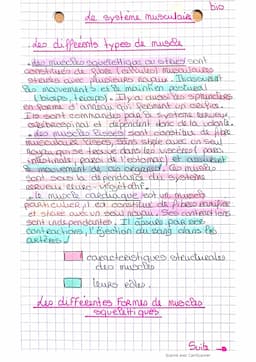 bio
Le système musculaire
. Les différents types de muscle
. Les muscles squelettique ou striés sont
constitués de fibre (cellules) musculaires
striées avec plusieurs noyaux. Ils assurent
les mouvements et le maintien postural
(biceps, triceps). Il y a aussi les sphincters
en forme d'anneau qui ferment un orifice.
Ils sont commandés par le système nerveux
cérébrospinal et dépendent donc de la volonté.
. des muscles lisses sont constitué de fibre
musculaire lisses, sans strie avec un seul
noyau qui se trouve dans les viscères (paroi
intestinale, paroi de l'estomac) et assurent
le mouvement de ces organes. Ces muscles
sont sous la dépendance du système
nerveux neuro-végétatif.
. le muscle cardiaque est un muscle
particulier il est constitué de fibres
et striée avec un seul noyau. Ses contractions
sont indépendantes. Il assure par ses
contractions, l'éjection du sang dans les
artères.
caractéristiques structurales
des muscles
leurs rôles.
Les différentes formes de muscles
squelettiques
Suite →